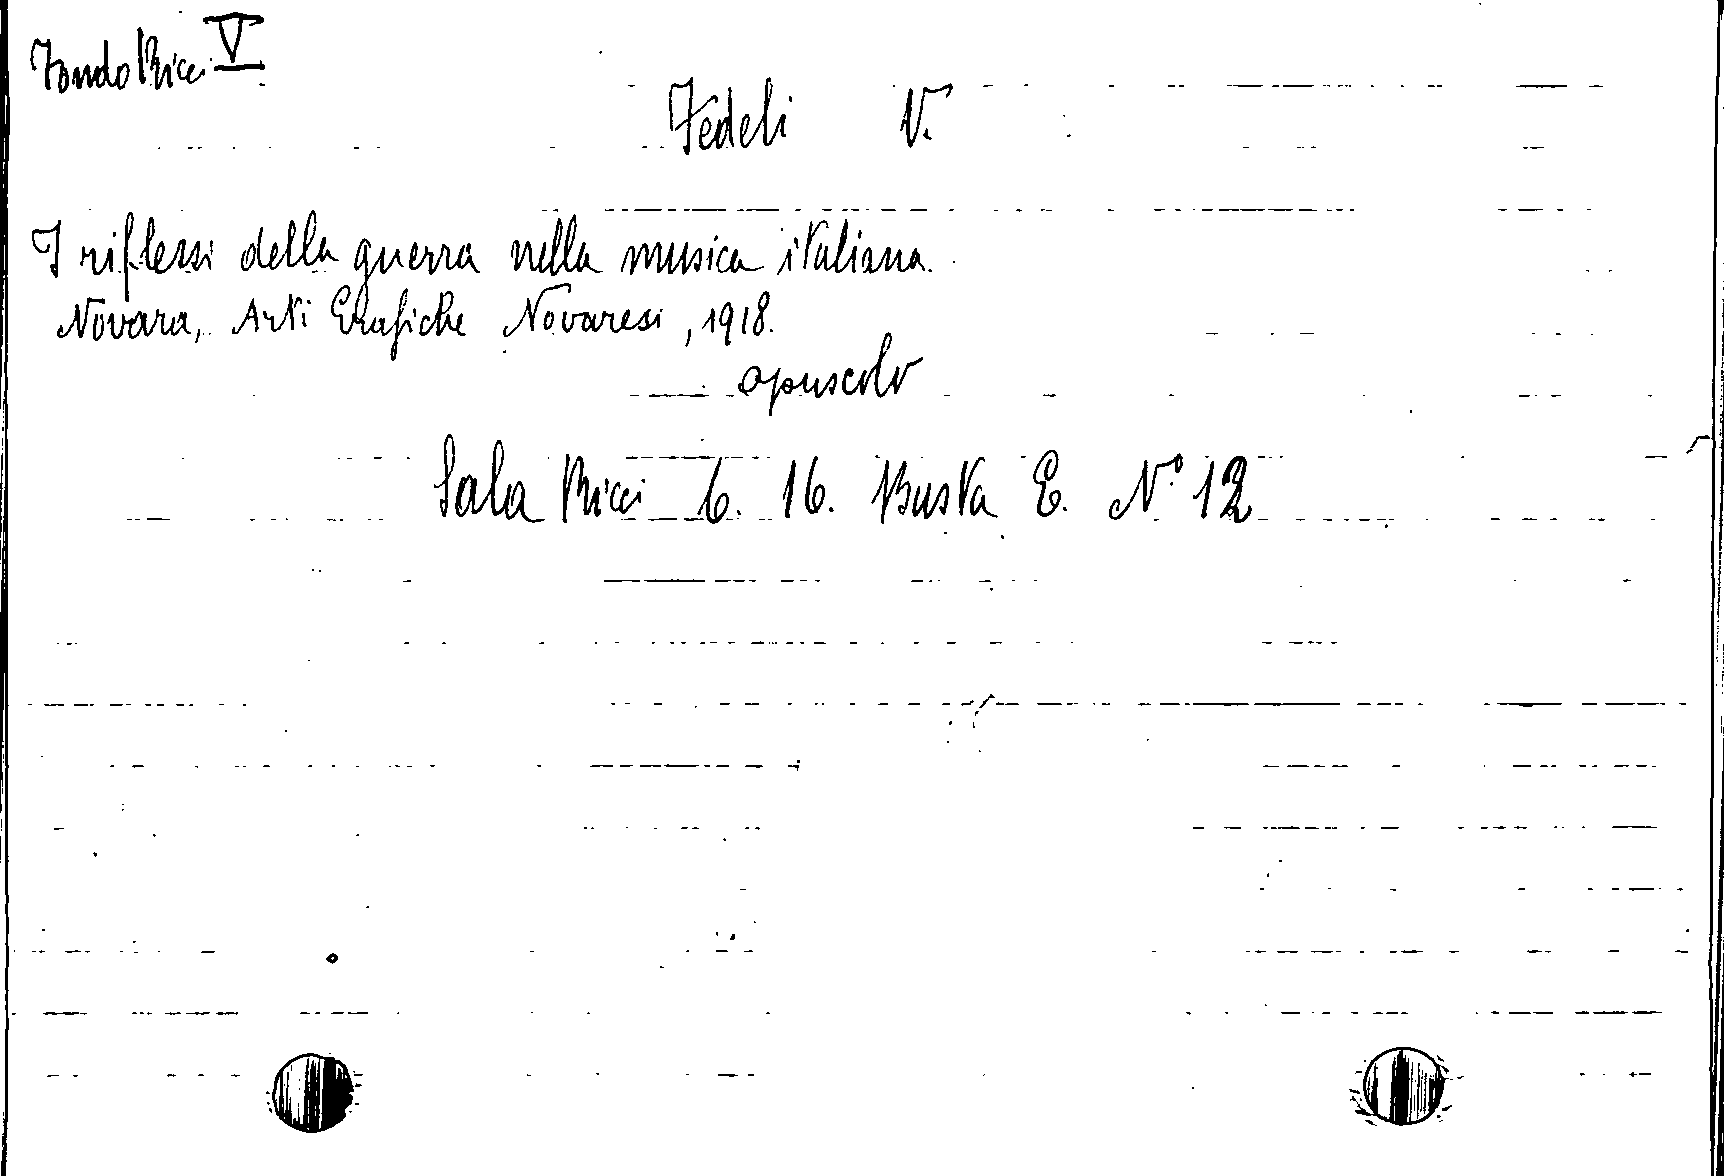 Fondo Ricci V
Fedeli V.
I riflessi della guerra nella musica italiana.
Novara, Arti Grafiche Novaresi, 1918.
opuscolo
Sala Ricci 6. 16. Busta E. N° 12